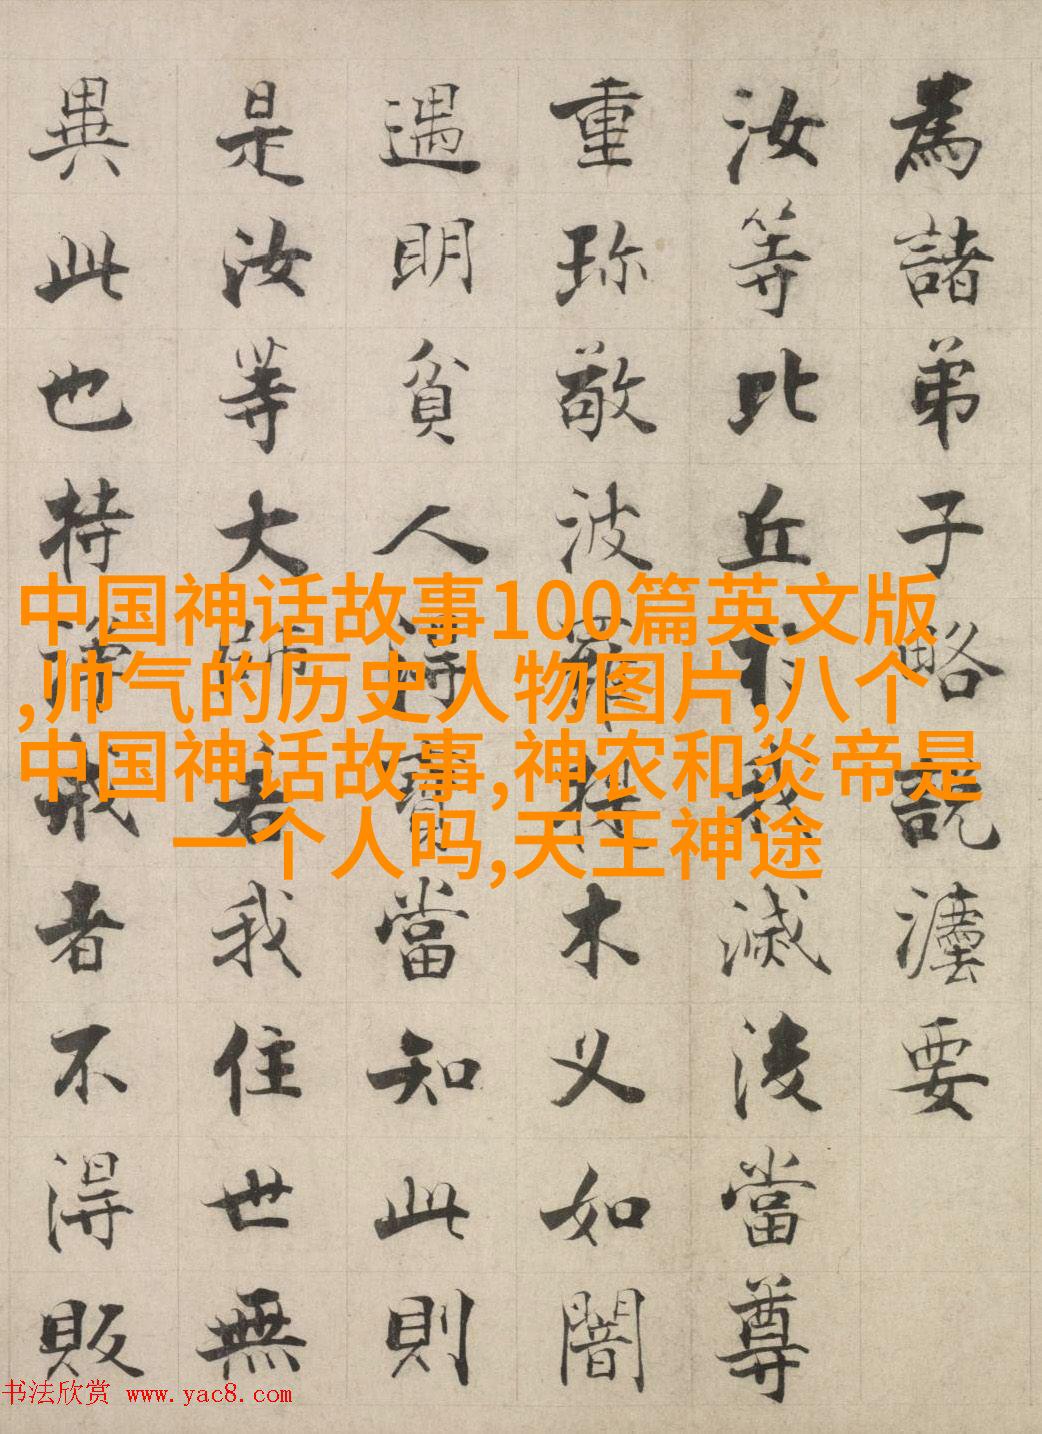 為諸弟子略說灋要
汝等比丘於我滅後當尊
重珎敬波羅提木叉如闇
遇明貧人得寶當知此則
是汝等大師若我住世無
異此也持淨戒者不得販
中国神话故事100篇英文版
,帅气的历史人物图片,八个
中国神话故事,神农和炎帝是
一个人吗,天王神途
书法欣赏 www.yac8.com